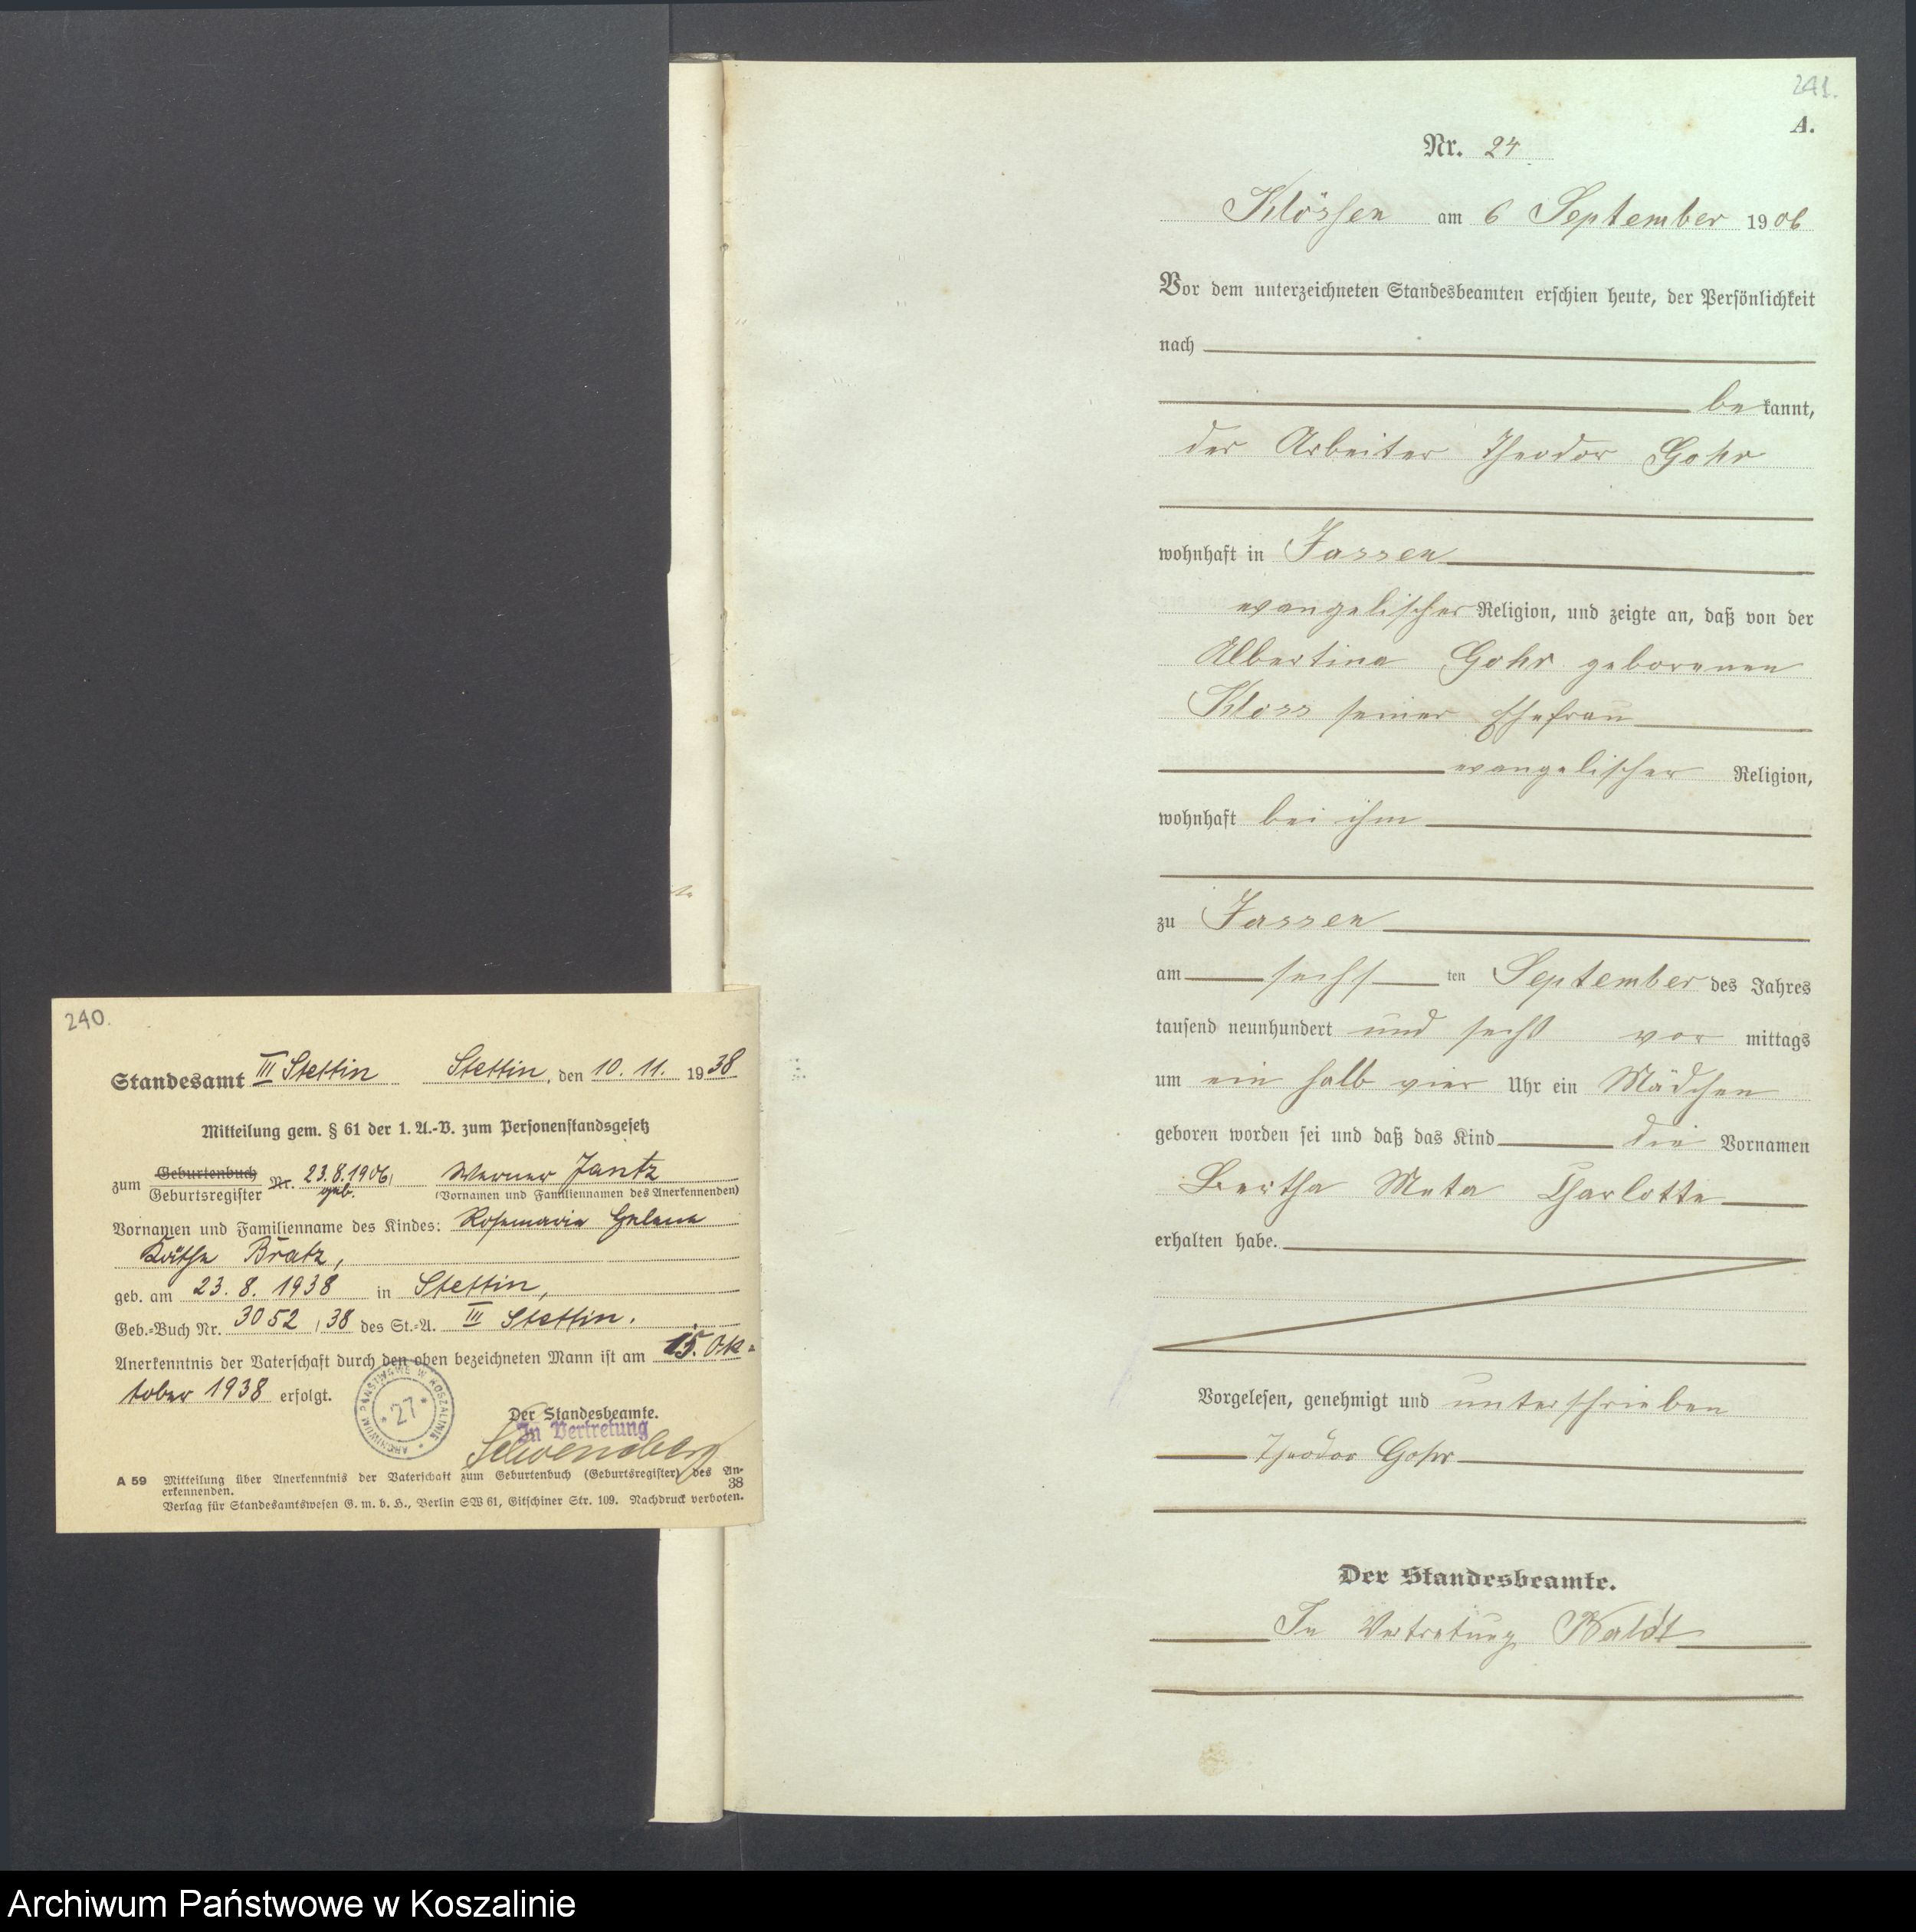 240.
Standesamt III Stettin Stettin, den 10. 11. 1938
Mitteilung gem. § 61 der 1. A.-V. zum Personenstandsgesetz
zum Geburtenbuch
Geburtsregister Nr. 23.8.1906, Werner Jantz
geb. (Vornamen und Familiennamen des Anerkennenden)
Vornamen und Familienname des Kindes: Rosemarie Helene
Käthe Bratz,
geb. am 23. 8. 1938 in Stettin,
Geb.-Buch Nr. 3052 / 38 des St.-A. III Stettin.
Anerkenntnis der Vaterschaft durch den oben bezeichneten Mann ist am 15. Ok-
tober 1938 erfolgt.
ARCHIWUM PAŃSTWOWE W KOSZALINIE
* 27 *
Der Standesbeamte.
In Vertretung
A 59 Mitteilung über Anerkenntnis der Vaterschaft zum Geburtenbuch (Geburtsregister) des An-
erkennenden. 38
Verlag für Standesamtswesen G. m. b. H., Berlin SW 61, Gitschiner Str. 109. Nachdruck verboten.
241.
A.
Nr. 24
Klössen am 6 September 1906
Vor dem unterzeichneten Standesbeamten erschien heute, der Persönlichkeit
nach
bekannt,
der Arbeiter Theodor Gohr
wohnhaft in Jassen
evangelischer Religion, und zeigte an, daß von der
Albertine Gohr geborenen
Kloss seiner Ehefrau
evangelischer Religion,
wohnhaft bei ihm
zu Jassen
am sechsten September des Jahres
tausend neunhundert und sechs vor mittags
um ein halb vier Uhr ein Mädchen
geboren worden sei und daß das Kind die Vornamen
Bertha Meta Charlotte
erhalten habe.
Vorgelesen, genehmigt und unterschrieben
Theodor Gohr
Der Standesbeamte.
In Vertretung
Archiwum Państwowe w Koszalinie